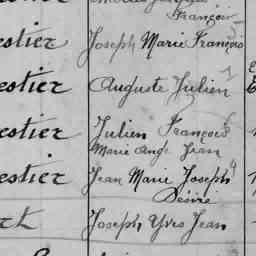 François
estier Joseph Marie François
estier Auguste Julien
estier Julien François
Marie Ange Jean
estier Jean Marie Joseph
Désiré
Joseph Yves Jean